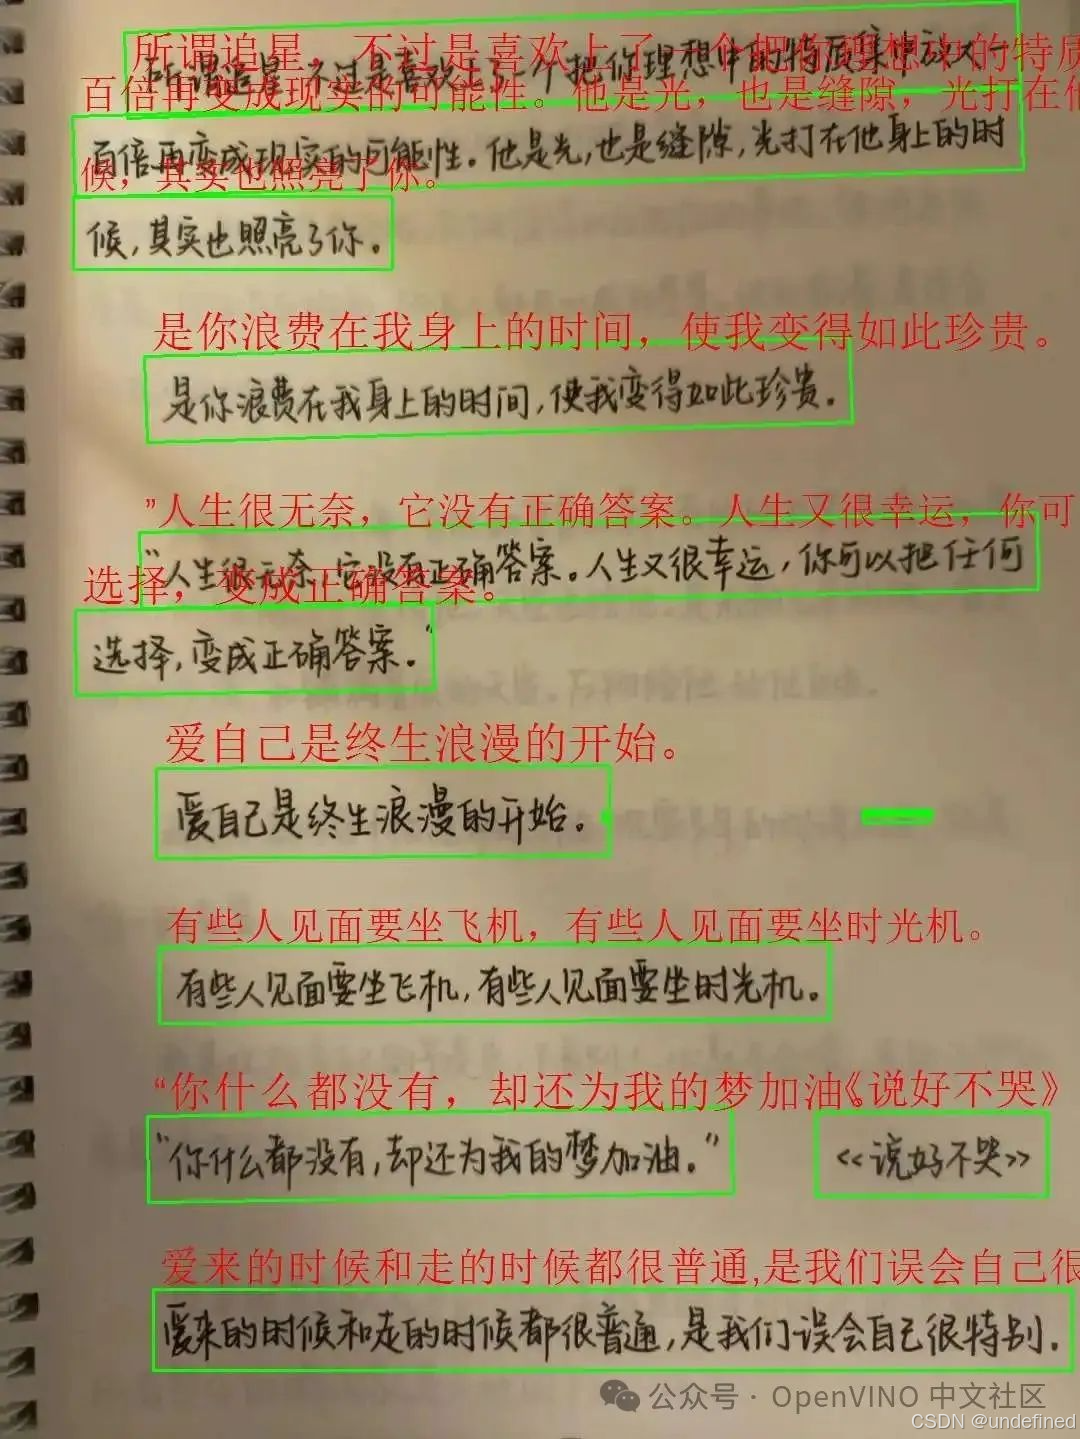 所谓追星，不过是喜欢上了一个把你理想中的特质
所谓追星，不过是喜欢上了一个把你理想中的特质集中放大一
百倍再变成现实的可能性。他是光，也是缝隙，光打在他
百倍再变成现实的可能性。他是光，也是缝隙，光打在他身上的时
候，其实也照亮了你。
候，其实也照亮了你。
是你浪费在我身上的时间，使我变得如此珍贵。
是你浪费在我身上的时间，使我变得如此珍贵。
”人生很无奈，它没有正确答案。人生又很幸运，你可
“人生很无奈，它没有正确答案。人生又很幸运，你可以把任何
选择，变成正确答案。
选择，变成正确答案。”
爱自己是终生浪漫的开始。
爱自己是终生浪漫的开始。
有些人见面要坐飞机，有些人见面要坐时光机。
有些人见面要坐飞机，有些人见面要坐时光机。
“你什么都没有，却还为我的梦加油《说好不哭》
“你什么都没有，却还为我的梦加油。” <<说好不哭>>
爱来的时候和走的时候都很普通,是我们误会自己很
爱来的时候和走的时候都很普通，是我们误会自己很特别．
公众号 · OpenVINO 中文社区
CSDN @undefined